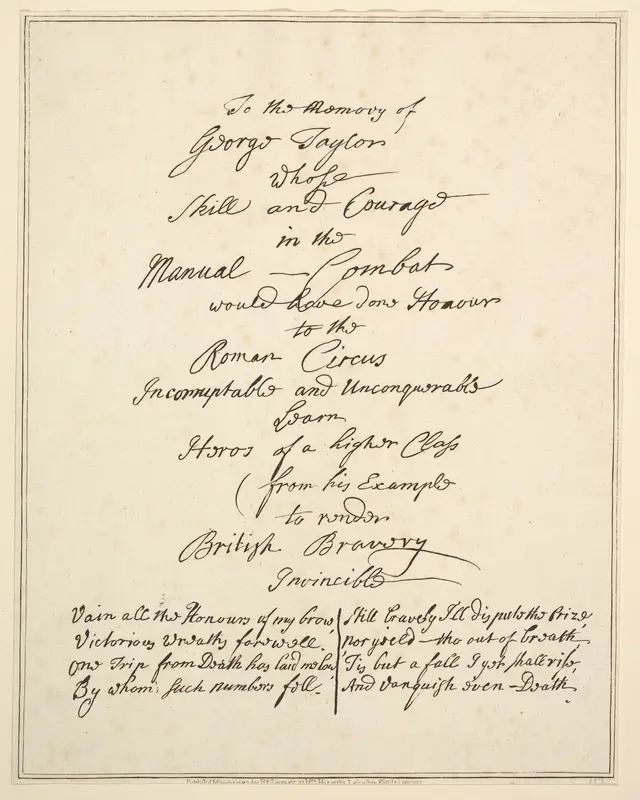 To the Memory of
George Taylor
whose
Skill and Courage
in the
Manual — Combat
would have done Honour
to the
Roman Circus
Incorruptable and Unconquerable
Learn
Heros of a higher Class
( from his Example
to render
British Bravery
Invincible
Vain all the Honours of my brow
Victorious wreaths farewell.
One Trip from Death has laid me low
By whom such numbers fell.
Still bravely I'll dispute the Prize
nor yield — tho out of breath
Tis but a fall I yet shall rise,
And vanquish even — Death.